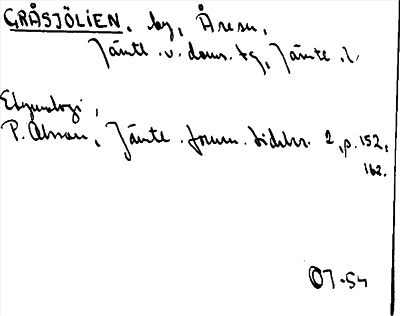 GRÅSJÖLIEN, by, Åre sn,
Jämtl. v. doms. tg, Jämtl. l.
Etymologi,
P. Olsson, Jämtl. fornm. tidskr. 2, p. 152,
162.
OJ-54